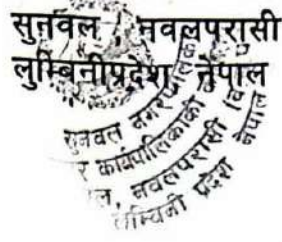 सुनवल , नवलपरासी
लुम्बिनीप्रदेश नेपाल
सुनवल नगरपालिका
कार्यपालिकाको
नवलपरासी
लुम्बिनी प्रदेश नेपाल